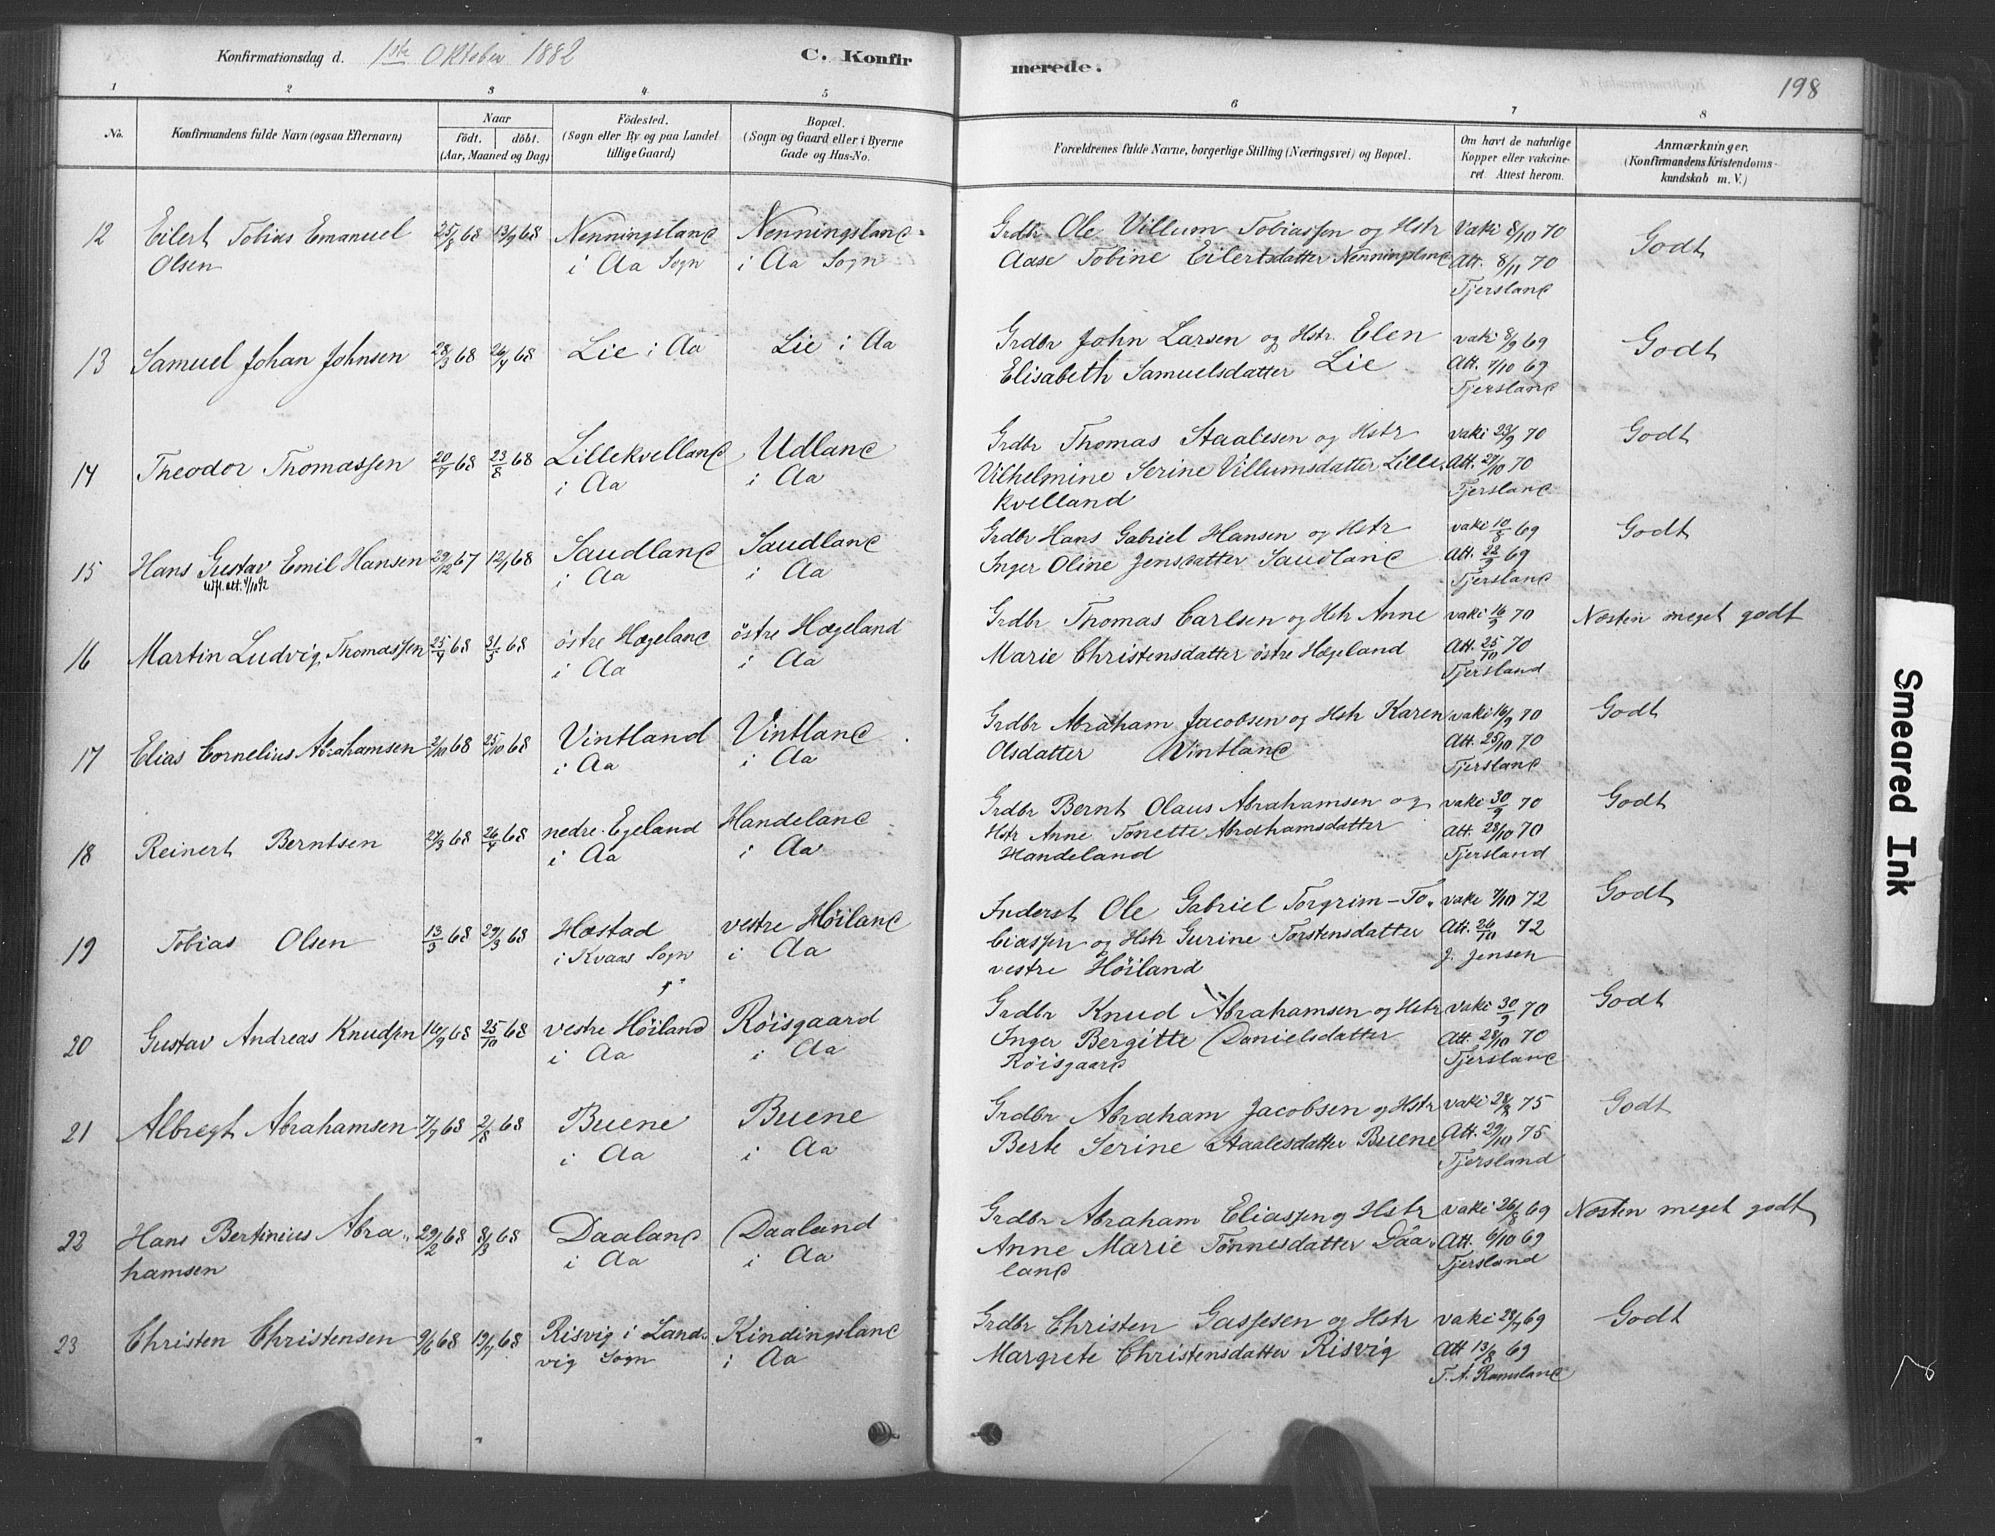 Konfirmationsdag d. 1ste Oktober 1882
C. Konfirmerede.
198
1 2 3 4 5 6 7 8
No.
Konfirmandens fulde Navn (ogsaa Efternavn)
Naar
födt. döbt.
(Aar, Maaned og Dag)
Födested.
(Sogn eller By og paa Landet
tillige Gaard)
Bopæl.
(Sogn og Gaard eller i Byerne
Gade og Hus-No.
Forældrenes fulde Navne, borgerlige Stilling (Næringsvei) og Bopæl.
Om havt de naturlige
Kopper eller vakcine-
ret. Attest herom.
Anmærkninger.
(Konfirmandens Kristendoms-
kundskab m. V.)
12 Eilert Tobias Emanuel 25/8 68 13/9 68 Nenningsland Nenningsland Grdbr Ole Villum Tobiassen og Hstr Vaki 8/10 70 Godt
Olsen i Aa Sogn i Aa Sogn Aase Tobine Eilertsdatter Nenningsland Att. 8/11 70
Tjersland
13 Samuel Johan Johnsen 28/3 68 26/4 68 Lie i Aa Lie i Aa Grdbr John Larsen og Hstr. Elen vaki 8/9 69 Godt
Elisabeth Samuelsdatter Lie Att. 7/10 69
Tjersland
14 Theodor Thomassen 20/7 68 23/8 68 Lillekvelland Udland Grdbr Thomas Staalesen og Hstr vaki 23/9 70 Godt
i Aa i Aa Vilhelmine Serine Villumsdatter Lille Att. 27/10 70
kvelland Tjersland
15 Hans Gustav Emil Hansen 29/12 67 12/1 68 Saudland Saudland Grdbr Hans Gabriel Hansen og Hstr vaki 10/8 69 Godt
i Aa i Aa Inger Oline Jensdatter Saudland Att. 22/9 69
Tjersland
16 Martin Ludvig Thomassen 25/4 68 31/5 68 östre Hægeland östre Hægeland Grdbr Thomas Carlsen og Hstr Anne vaki 16/9 70 Næsten meget godt
i Aa i Aa Marie Christensdatter östre Hægeland Att. 25/10 70
Tjersland
17 Elias Cornelius Abrahamsen 2/10 68 25/10 68 Vintland Vintland Grdbr Abraham Jacobsen og Hstr Karen vaki 16/9 70 Godt
i Aa i Aa Olsdatter Vintland Att. 25/10 70
Tjersland
18 Reinert Berntsen 27/3 68 26/4 68 nedre Egeland Handeland Grdbr Bernt Olaus Abrahamsen og vaki 30/9 70 Godt
i Aa i Aa Hstr Anne Tonette Abrahamsdatter Att. 28/10 70
Handeland Tjersland
19 Tobias Olsen 13/3 68 29/3 68 Hæstad vestre Höiland Inderst Ole Gabriel Torgrim-To- vaki 7/10 72 Godt
i Kvaas Sogn i Aa biassen og Hstr Gurine Torstensdatter Att. 26/10 72
vestre Höiland J. Jensen
20 Gustav Andreas Knudsen 16/9 68 25/10 68 vestre Höiland Röisgaard Grdbr Knud Abrahamsen og Hstr vaki 30/9 70 Godt
i Aa i Aa Inger Bergitte Danielsdatter Att. 28/10 70
Röisgaard Tjersland
21 Albregt Abrahamsen 7/7 68 2/8 68 Buene Buene Grdbr Abraham Jacobsen og Hstr vaki 28/8 75 Godt
i Aa i Aa Berte Serine Staalesdatter Buene Att. 29/10 75
Tjersland
22 Hans Bertinius Abra- 29/2 68 8/3 68 Daaland Daaland Grdbr Abraham Eliassen og Hstr vaki 26/8 69 Næsten meget godt
hamsen i Aa i Aa Anne Marie Tönnesdatter Daa- Att. 6/10 69
land Tjersland
23 Christen Christensen 9/6 68 19/7 68 Risvig i Land- Kindingsland Grdbr Christen Gassesen og Hstr vaki 28/7 69 Godt
vig Sogn i Aa Margrete Christensdatter Risvig Att 13/8 69
T. A. Ramsland
Smeared Ink